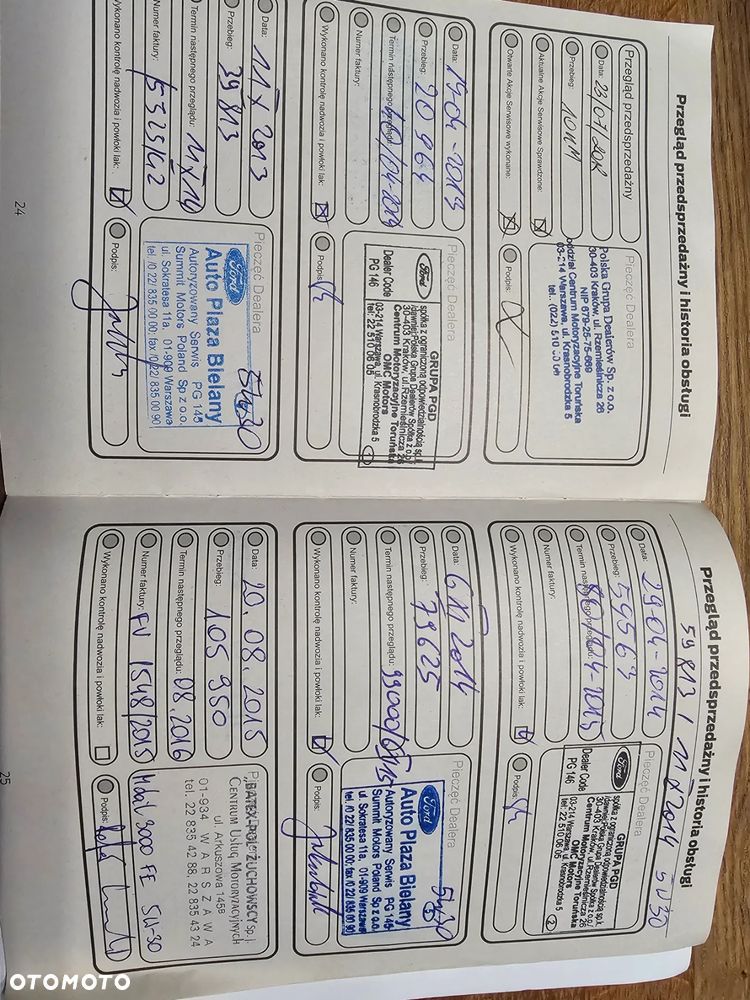 Przegląd przedsprzedażny i historia obsługi
Przegląd przedsprzedażny
Data: 23/07/2012
Przebieg: 10KM
Aktualne Akcje Serwisowe Sprawdzone:
Otwarte Akcje Serwisowe wykonane:
Pieczęć Dealera
Polska Grupa Dealerów Sp. z o.o.
30-403 Kraków, ul. Rzemieślnicza 26
NIP 679-25-75-069
oddział Centrum Motoryzacyjne Toruńska
03-214 Warszawa, ul. Krasnobrodzka 5
tel.. (022) 510 06 06
Podpis:
Data: 19.04-2013
Przebieg: 20 964
Termin następnego przeglądu: 40/04-2014
Numer faktury:
Wykonano kontrolę nadwozia i powłoki lak:
Pieczęć Dealera
Ford
Dealer Code
PG 146
GRUPA PGD
spółka z ograniczoną odpowiedzialnością sp.k.
/dawniej Polska Grupa Dealerów Spółka z o.o./
30-403 Kraków, ul. Rzemieślnicza 26
Centrum Motoryzacyjne Toruńska
OMC Motors
03-214 Warszawa, ul. Krasnobrodzka 5
tel. 22 510 06 06
1
Podpis:
Data: 11 X 2013
Przebieg: 39 813
Termin następnego przeglądu: 11 X 14
Numer faktury:
Wykonano kontrolę nadwozia i powłoki lak:
Pieczęć Dealera
5W30
Ford
Auto Plaza Bielany
Autoryzowany Serwis PG 145
Summit Motors Poland Sp z o.o.
ul. Sokratesa 11a, 01-909 Warszawa
tel. /0 22/ 835 00 00, fax /0 22/ 835 00 90
Podpis:
24
Przegląd przedsprzedażny i historia obsługi
59 813 / 11 X 2014 5W30
Data: 29.04-2014
Przebieg: 59563
Termin następnego przeglądu: 80/04-2015
Numer faktury:
Wykonano kontrolę nadwozia i powłoki lak:
Pieczęć Dealera
Ford
Dealer Code
PG 146
GRUPA PGD
spółka z ograniczoną odpowiedzialnością sp.k.
/dawniej Polska Grupa Dealerów Spółka z o.o./
30-403 Kraków, ul. Rzemieślnicza 26
Centrum Motoryzacyjne Toruńska
OMC Motors
03-214 Warszawa, ul. Krasnobrodzka 5
tel. 22 510 06 06
2
Podpis:
Data: 6 XI 2014
Przebieg: 79625
Termin następnego przeglądu: 99000/
Numer faktury:
Wykonano kontrolę nadwozia i powłoki lak:
Pieczęć Dealera
5W30
Ford
Auto Plaza Bielany
Autoryzowany Serwis PG 145
Summit Motors Poland Sp z o.o.
ul. Sokratesa 11a, 01-909 Warszawa
tel. /0 22/ 835 00 00, fax /0 22/ 835 00 90
Podpis:
Data: 20.08.2015
Przebieg: 105 950
Termin następnego przeglądu: 08.2016
Numer faktury: FV 1548/2015
Wykonano kontrolę nadwozia i powłoki lak:
"BATEX-POL" ŻUCHOWSCY Sp. j.
CENTRUM USŁUG MOTORYZACYJNYCH
ul Arkuszowa 145B
01-934 WARSZAWA
tel. 22 835 42 88, 22 835 43 24
Mobil 3000 FE 5W-30
Podpis:
25
OTOMOTO